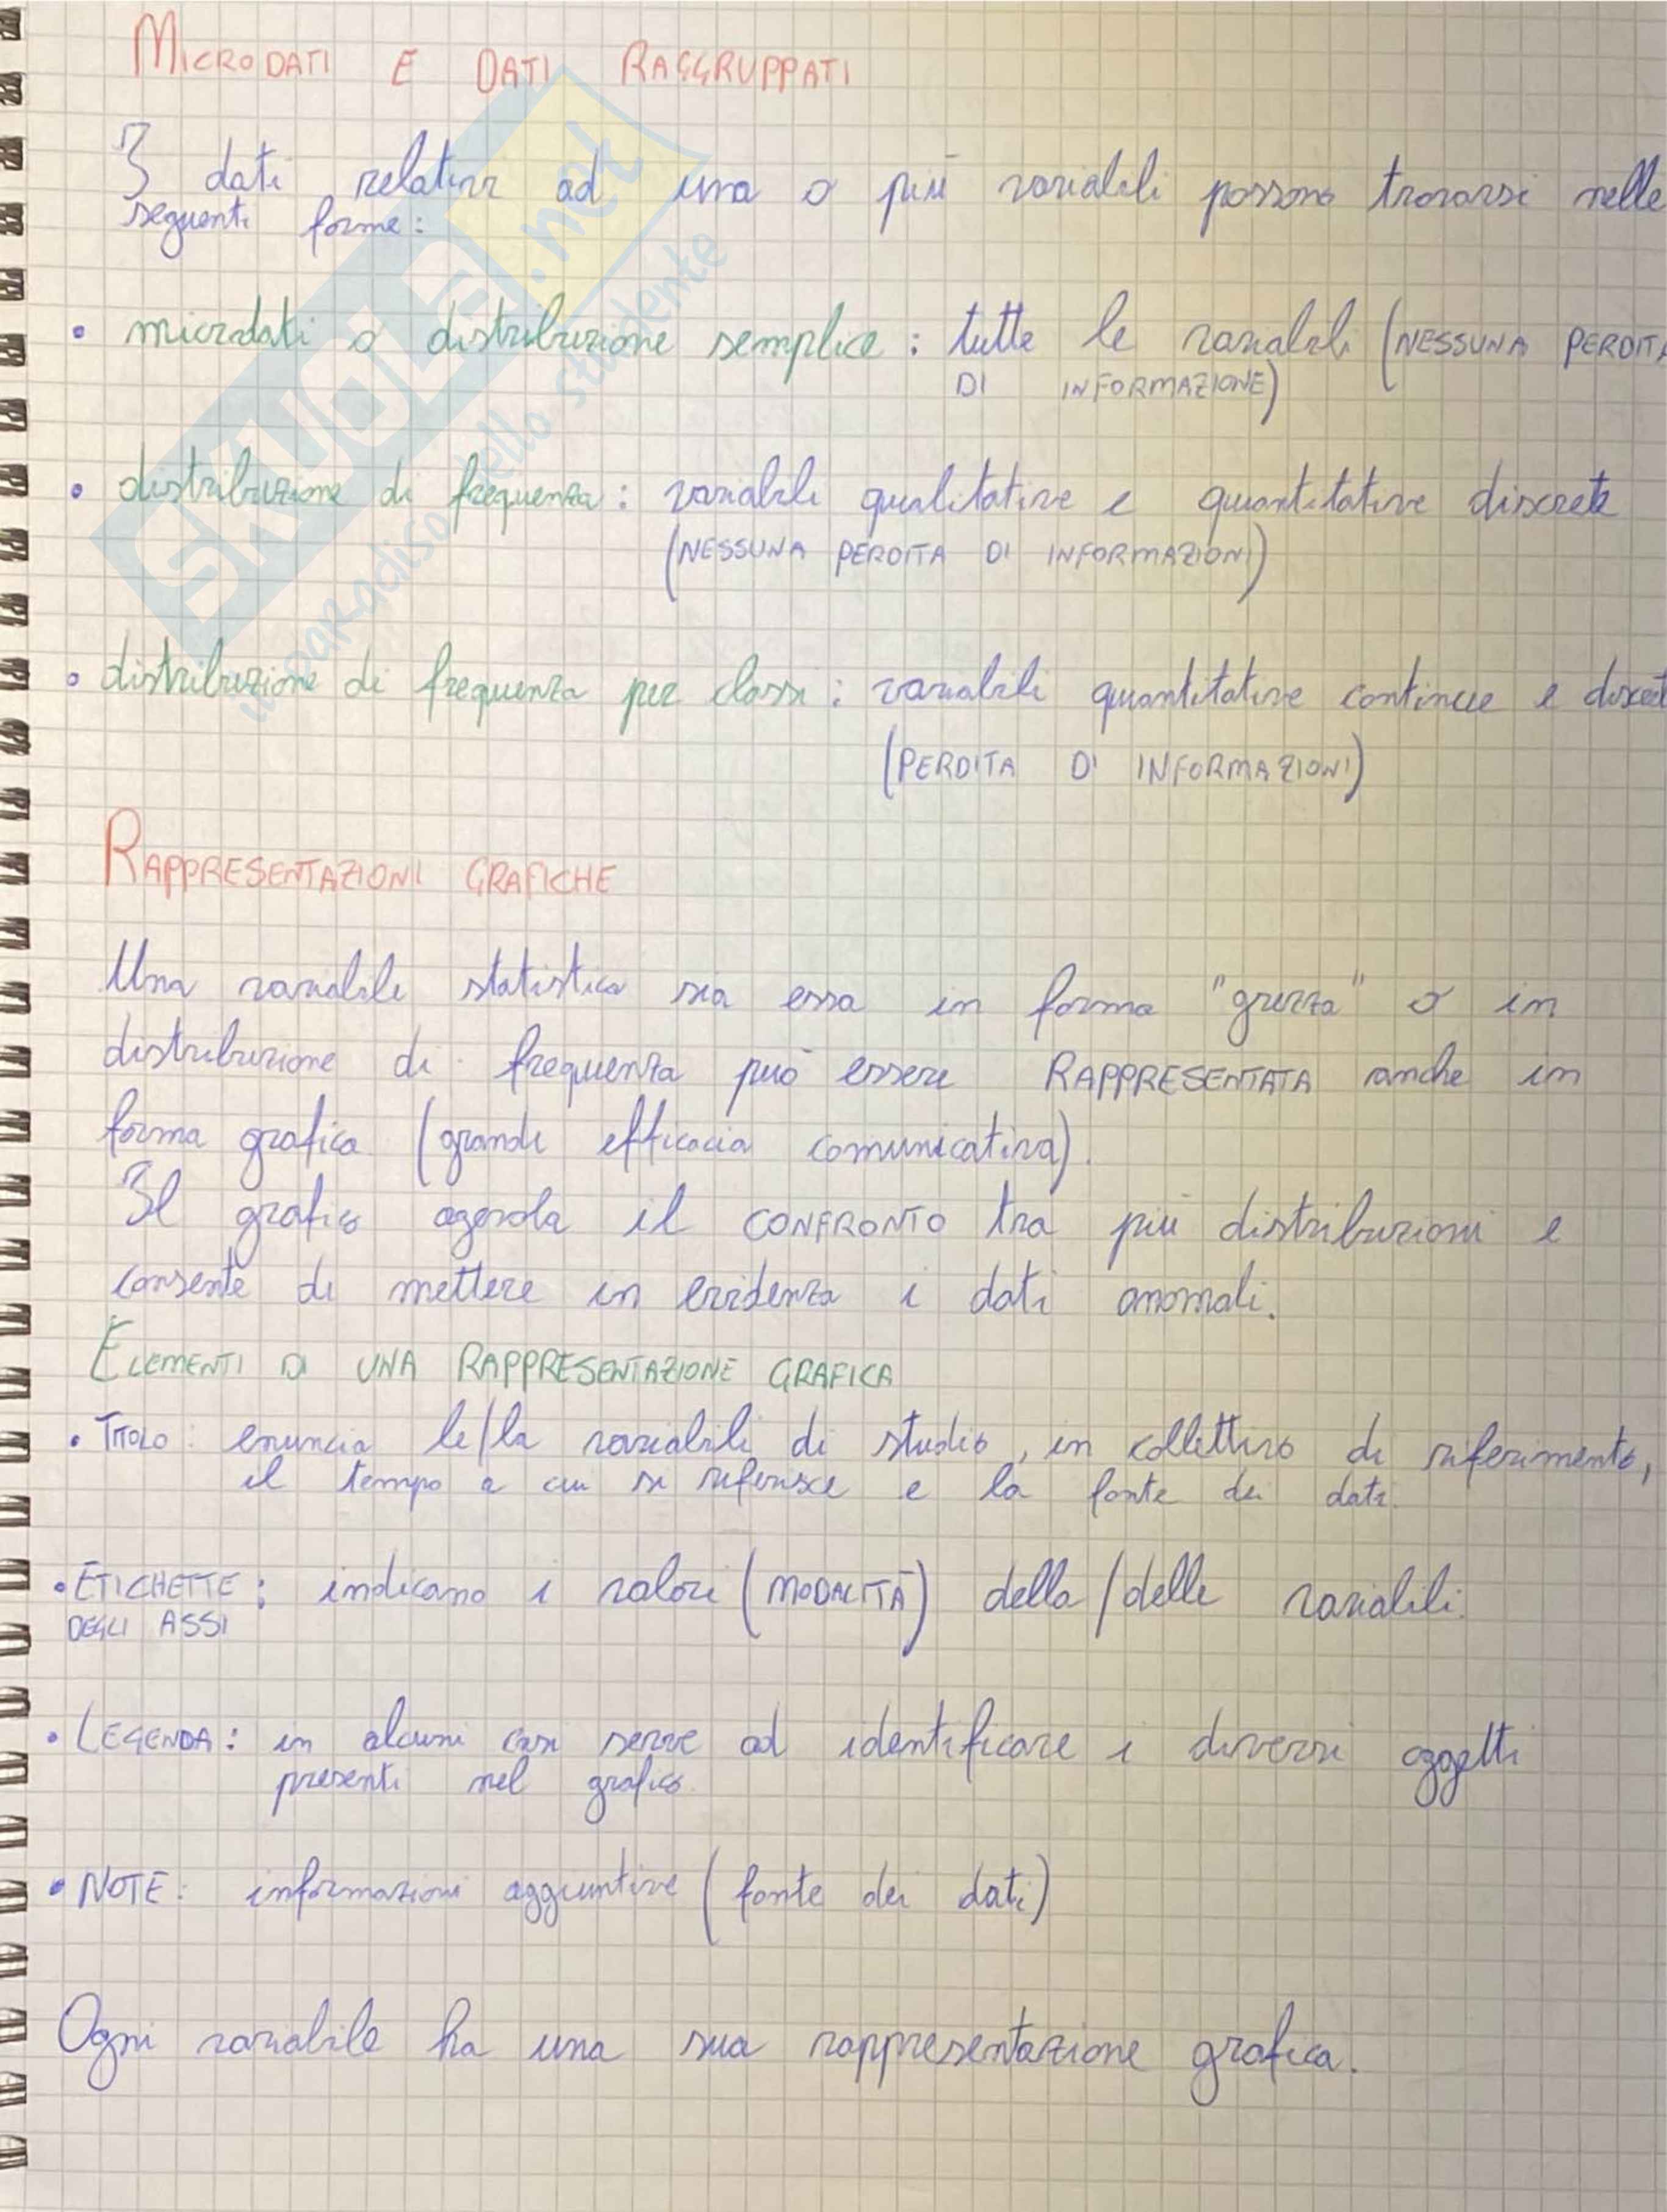 MICRODATI E DATI RAGGRUPPATI
I dati relativi ad una o più variabili possono trovarsi nelle
seguenti forme:
• microdati o distribuzione semplice: tutte le variabili (NESSUNA PERDITA
DI INFORMAZIONE)
• distribuzione di frequenza: variabili qualitative e quantitative discrete
(NESSUNA PERDITA DI INFORMAZIONI)
• distribuzione di frequenza per classi: variabili quantitative continue e discret
(PERDITA DI INFORMAZIONI)
RAPPRESENTAZIONI GRAFICHE
Una variabile statistica sia essa in forma "grezza" o in
distribuzione di frequenza può essere RAPPRESENTATA anche in
forma grafica (grande efficacia comunicativa).
Il grafico agevola il CONFRONTO tra più distribuzioni e
consente di mettere in evidenza i dati anomali.
ELEMENTI DI UNA RAPPRESENTAZIONE GRAFICA
• TITOLO: enuncia le/la variabili di studio, in collettivo di riferimento,
il tempo a cui si riferisce e la fonte dei dati.
• ETICHETTE: indicano i valori (MODALITÀ) della/delle variabili.
DEGLI ASSI
• LEGENDA: in alcuni casi serve ad identificare i diversi oggetti
presenti nel grafico.
• NOTE: informazioni aggiuntive (fonte dei dati)
Ogni variabile ha una sua rappresentazione grafica.
SKUOLA.net
il paradiso dello studente